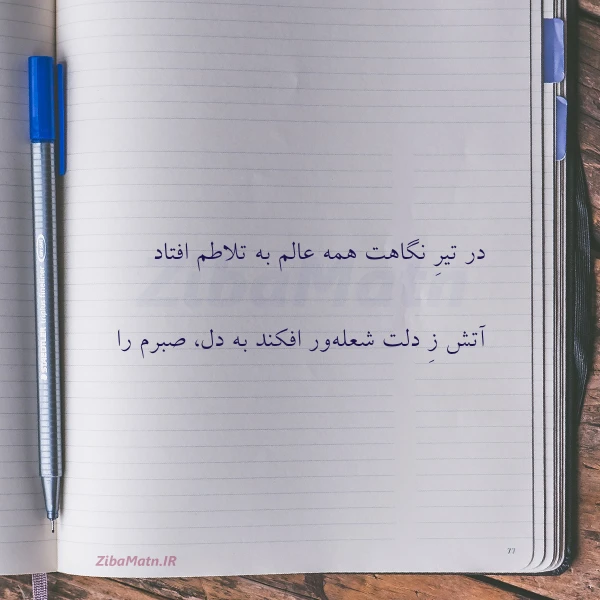 در تیرِ نگاهت همه عالم به تلاطم افتاد
آتش زِ دلت شعله‌ور افکند به دل، صبرم را
ZibaMatn.IR
ZibaMatn.IR